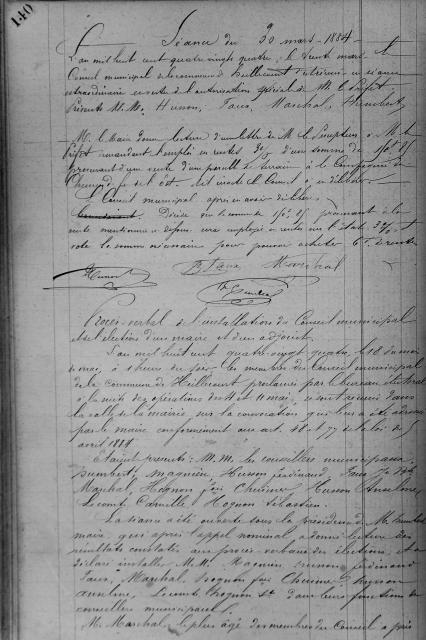 140
Séance du 30 mars 1884
L'an mil huit cent quatre vingt quatre, le trente mars le
Conseil municipal de la commune d'Heillecourt s'est réuni en séance
extraordinaire en vertu de l'autorisation spéciale de M. le Préfet
Présents M.M. Husson, Marchal, Humbert
M. le Maire donne lecture d'une lettre de M. le
Préfet l'emploi en rentes 3% d'une somme de
provenant d'une vente d'une parcelle de terrain à la Compagnie de
Chemin de fer de l'Est. le Conseil à en délibérer.
Le Conseil municipal après en avoir délibéré
Décide que la somme de provenant de la
vente mentionnée sera employée en rentes sur l'état 3% et
vote la somme nécessaire pour pouvoir acheter 6f de rente
Marchal
Procès-verbal de l'installation du Conseil municipal
et de l'élection d'un maire et d'un adjoint.
L'an mil huit cent quatre-vingt quatre, le 18 du mois
de mai, à heures du soir les membres du Conseil municipal
de la commune d'Heillecourt proclamés par le bureau électoral
à la suite des opérations des 4 et 11 mai, se sont réunis dans
la salle de la mairie sur la convocation qui leur a été adressée
par le maire conformément aux art. 48 et 77 de la loi du 5
avril 1884.
Etaient présents : M.M. les conseillers municipaux
Humbert, Magnien, Husson Ferdinand,
Marchal, Hognon Husson Anselme,
Lecomte Camille Hognon Sébastien.
La séance a été ouverte sous la présidence de M. Humbert
maire, qui après l'appel nominal, a donné lecture des
résultats constatés aux procès-verbaux des élections, et a
déclaré installer M.M. Magnien, Husson Ferdinand
Marchal, Hognon Husson
Anselme, Lecomte, Hognon dans leurs fonctions de
conseillers municipaux.
M. Marchal, le plus âgé des membres du Conseil a pris